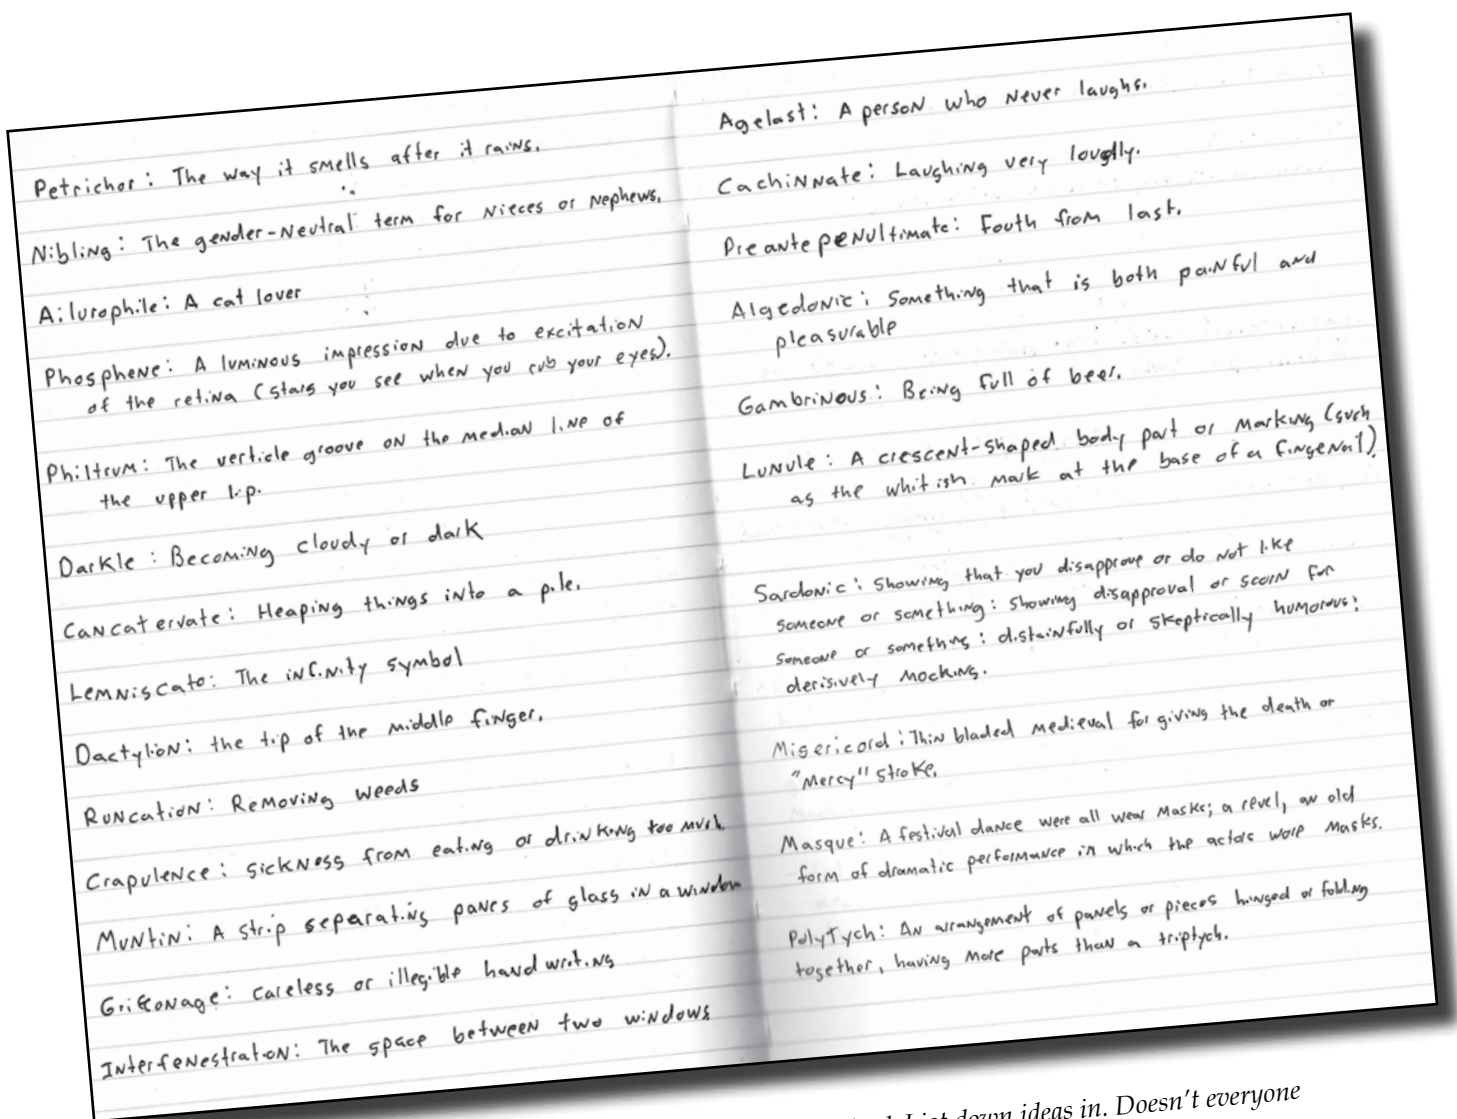 Petrichor: The way it smells after it rains.
Nibling: The gender-neutral term for nieces or nephews.
Ailurophile: A cat lover
Phosphene: A luminous impression due to excitation
of the retina (stars you see when you rub your eyes).
Philtrum: The verticle groove on the median line of
the upper lip.
Darkle: Becoming cloudy or dark
Cancatervate: Heaping things into a pile.
Lemniscato: The infinity symbol
Dactylion: the tip of the middle finger.
Runcation: Removing weeds
Crapulence: sickness from eating or drinking too much.
Muntin: A strip separating panes of glass in a window
Griffonage: careless or illegible handwriting
Interfenestration: The space between two windows
Agelast: A person who never laughs.
Cachinnate: Laughing very loudly.
Preantepenultimate: Fouth from last.
Algedonic: Something that is both painful and
pleasurable
Gambrinous: Being full of beer.
Lunule: A crescent-shaped body part or marking (such
as the whitish mark at the base of a fingenail).
Sardonic: Showing that you disapprove or do not like
someone or something: showing disapproval or scorn for
someone or something: distainfully or skeptically humorous:
derisively mocking.
Misericord: Thin bladed medieval for giving the death or
"Mercy" stroke.
Masque: A festival dance were all wear masks; a revel, an old
form of dramatic performance in which the actors wore masks.
PolyTych: An arrangement of panels or pieces hinged or folding
together, having more parts than a triptych.
I jot down ideas in. Doesn't everyone